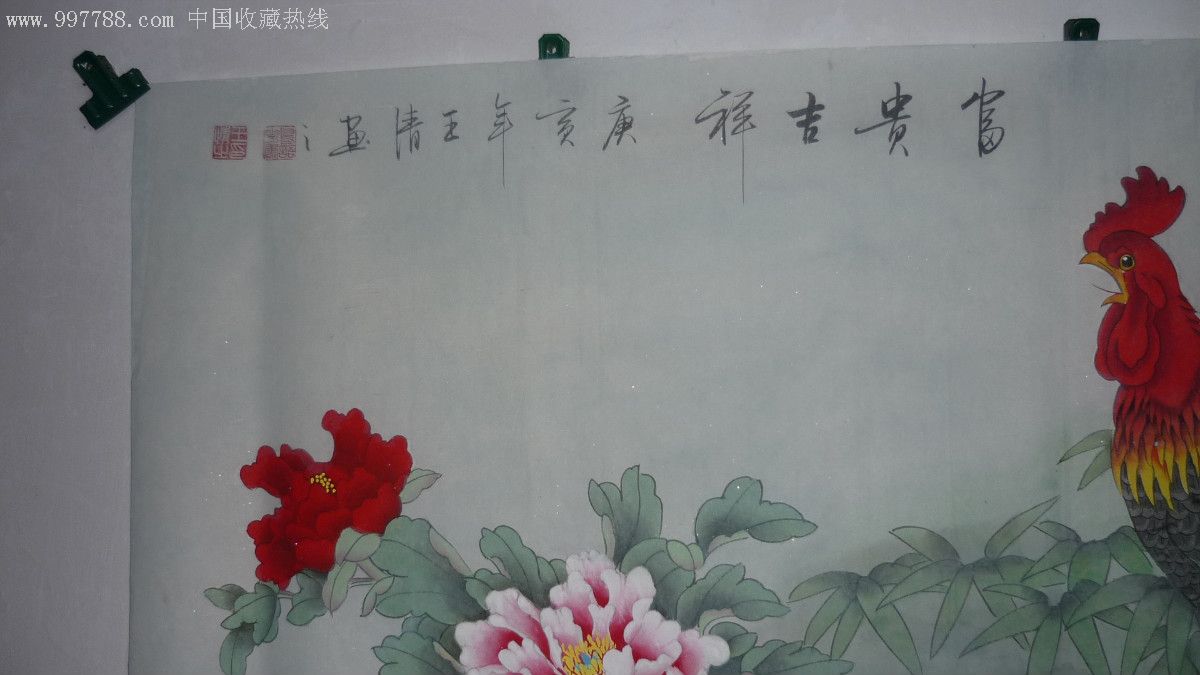 www.997788.com 中国收藏热线
富贵吉祥庚寅年王清画之